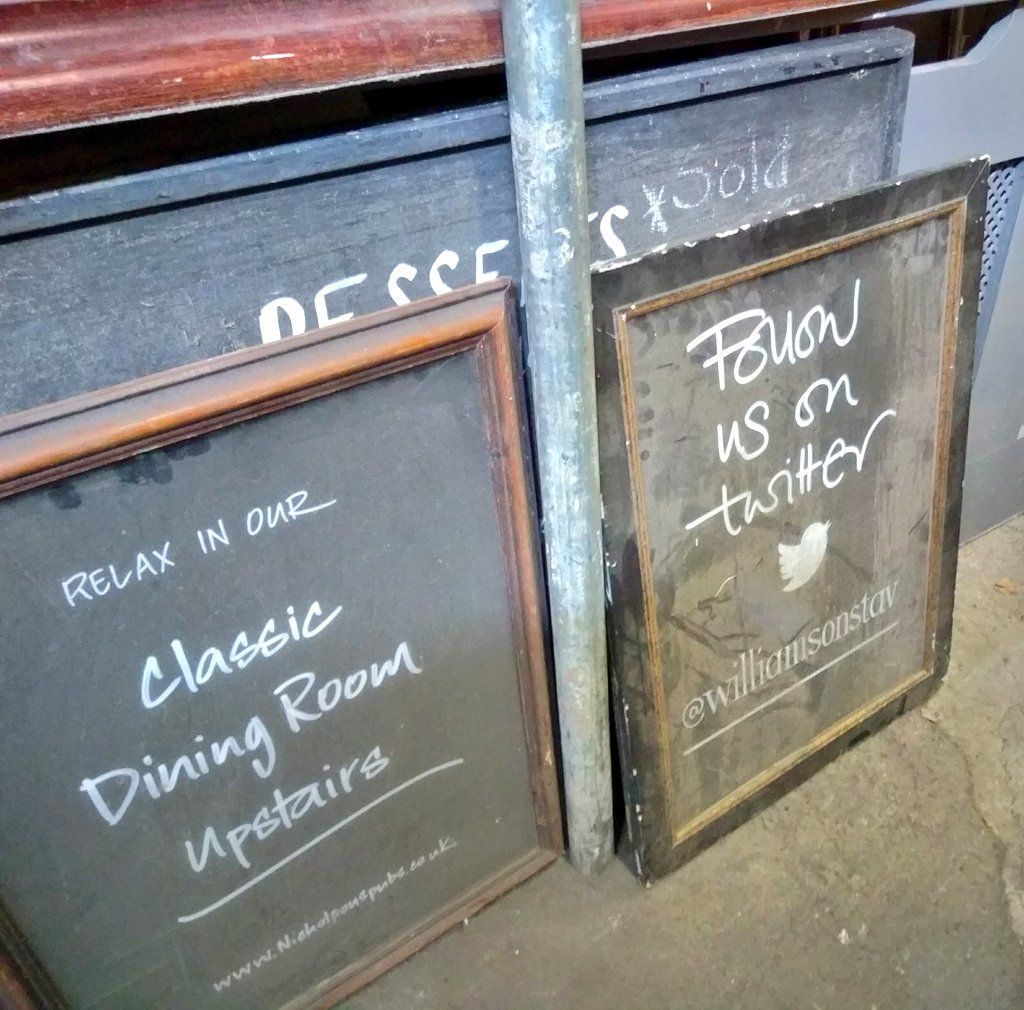 * Sold
RELAX IN OUR
Classic
Dining Room
Upstairs
www.Nicholsonspubs.co.uk
Follow
us on
twitter
@williamsonstav